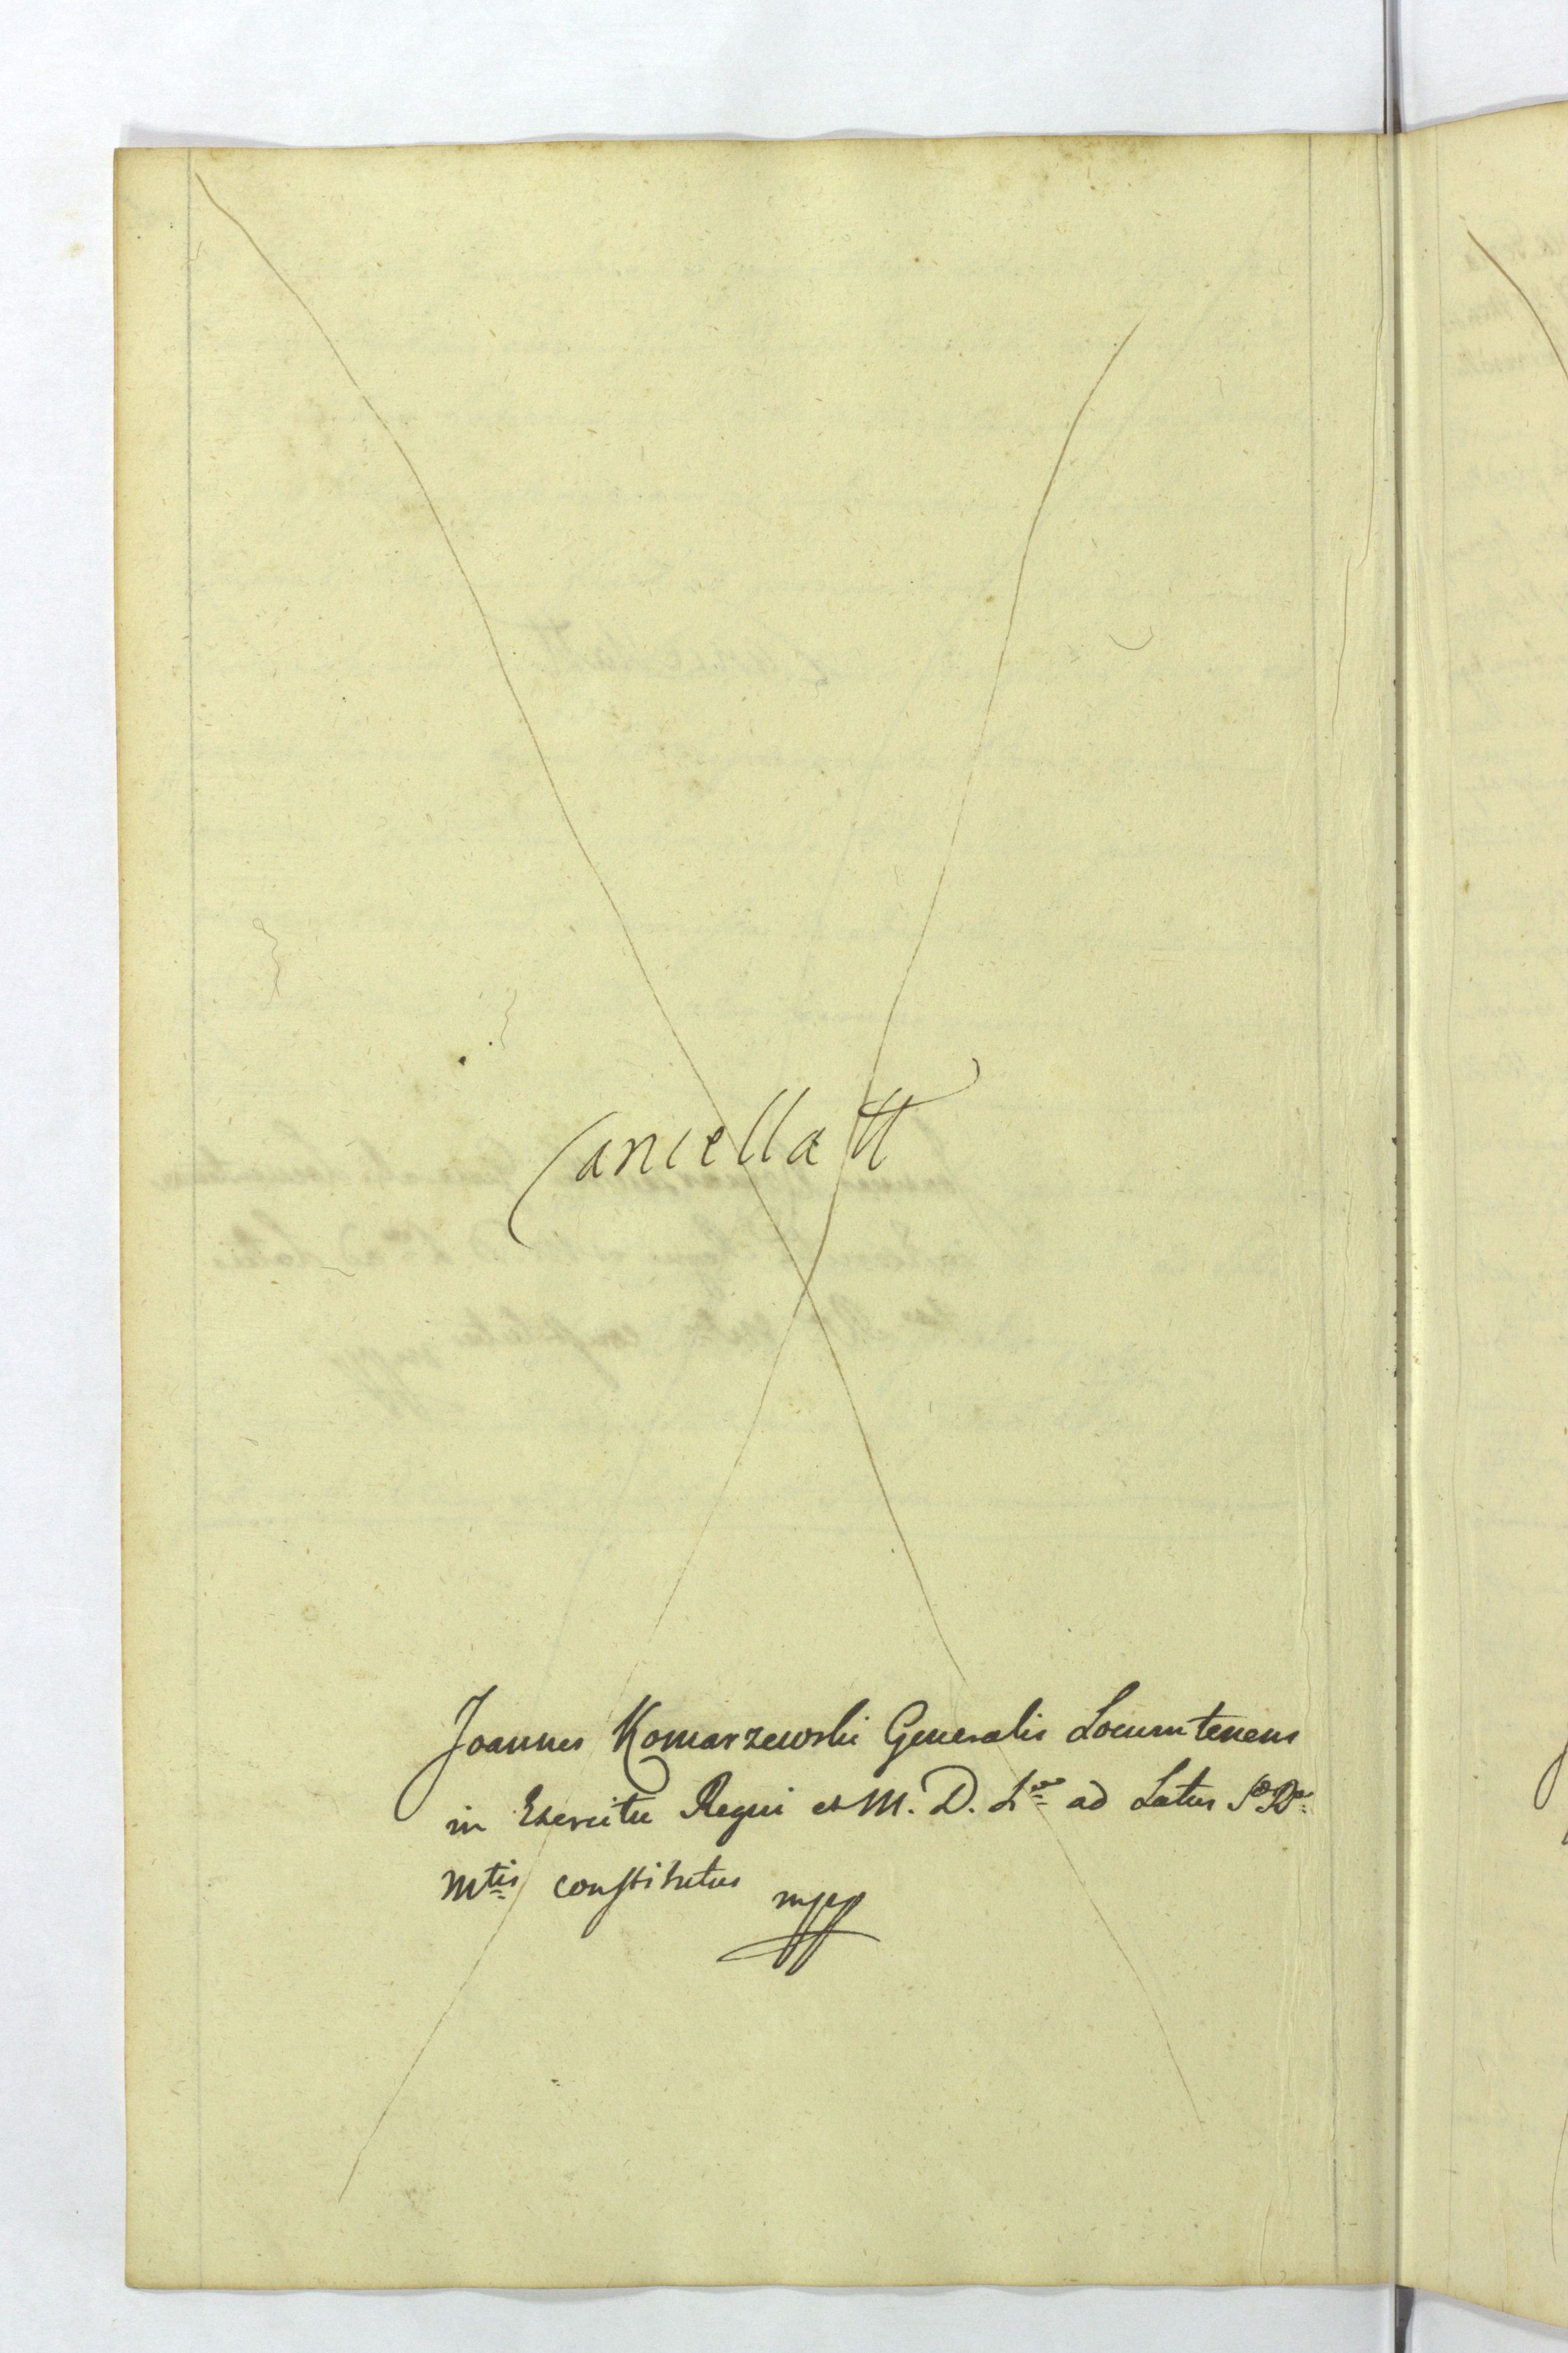 Cancellatt
Joannes Komarzewski Generalis Locumtenens
in Exercitu Regni et M. D. L. ad Latus
Mtis constitutus mpp